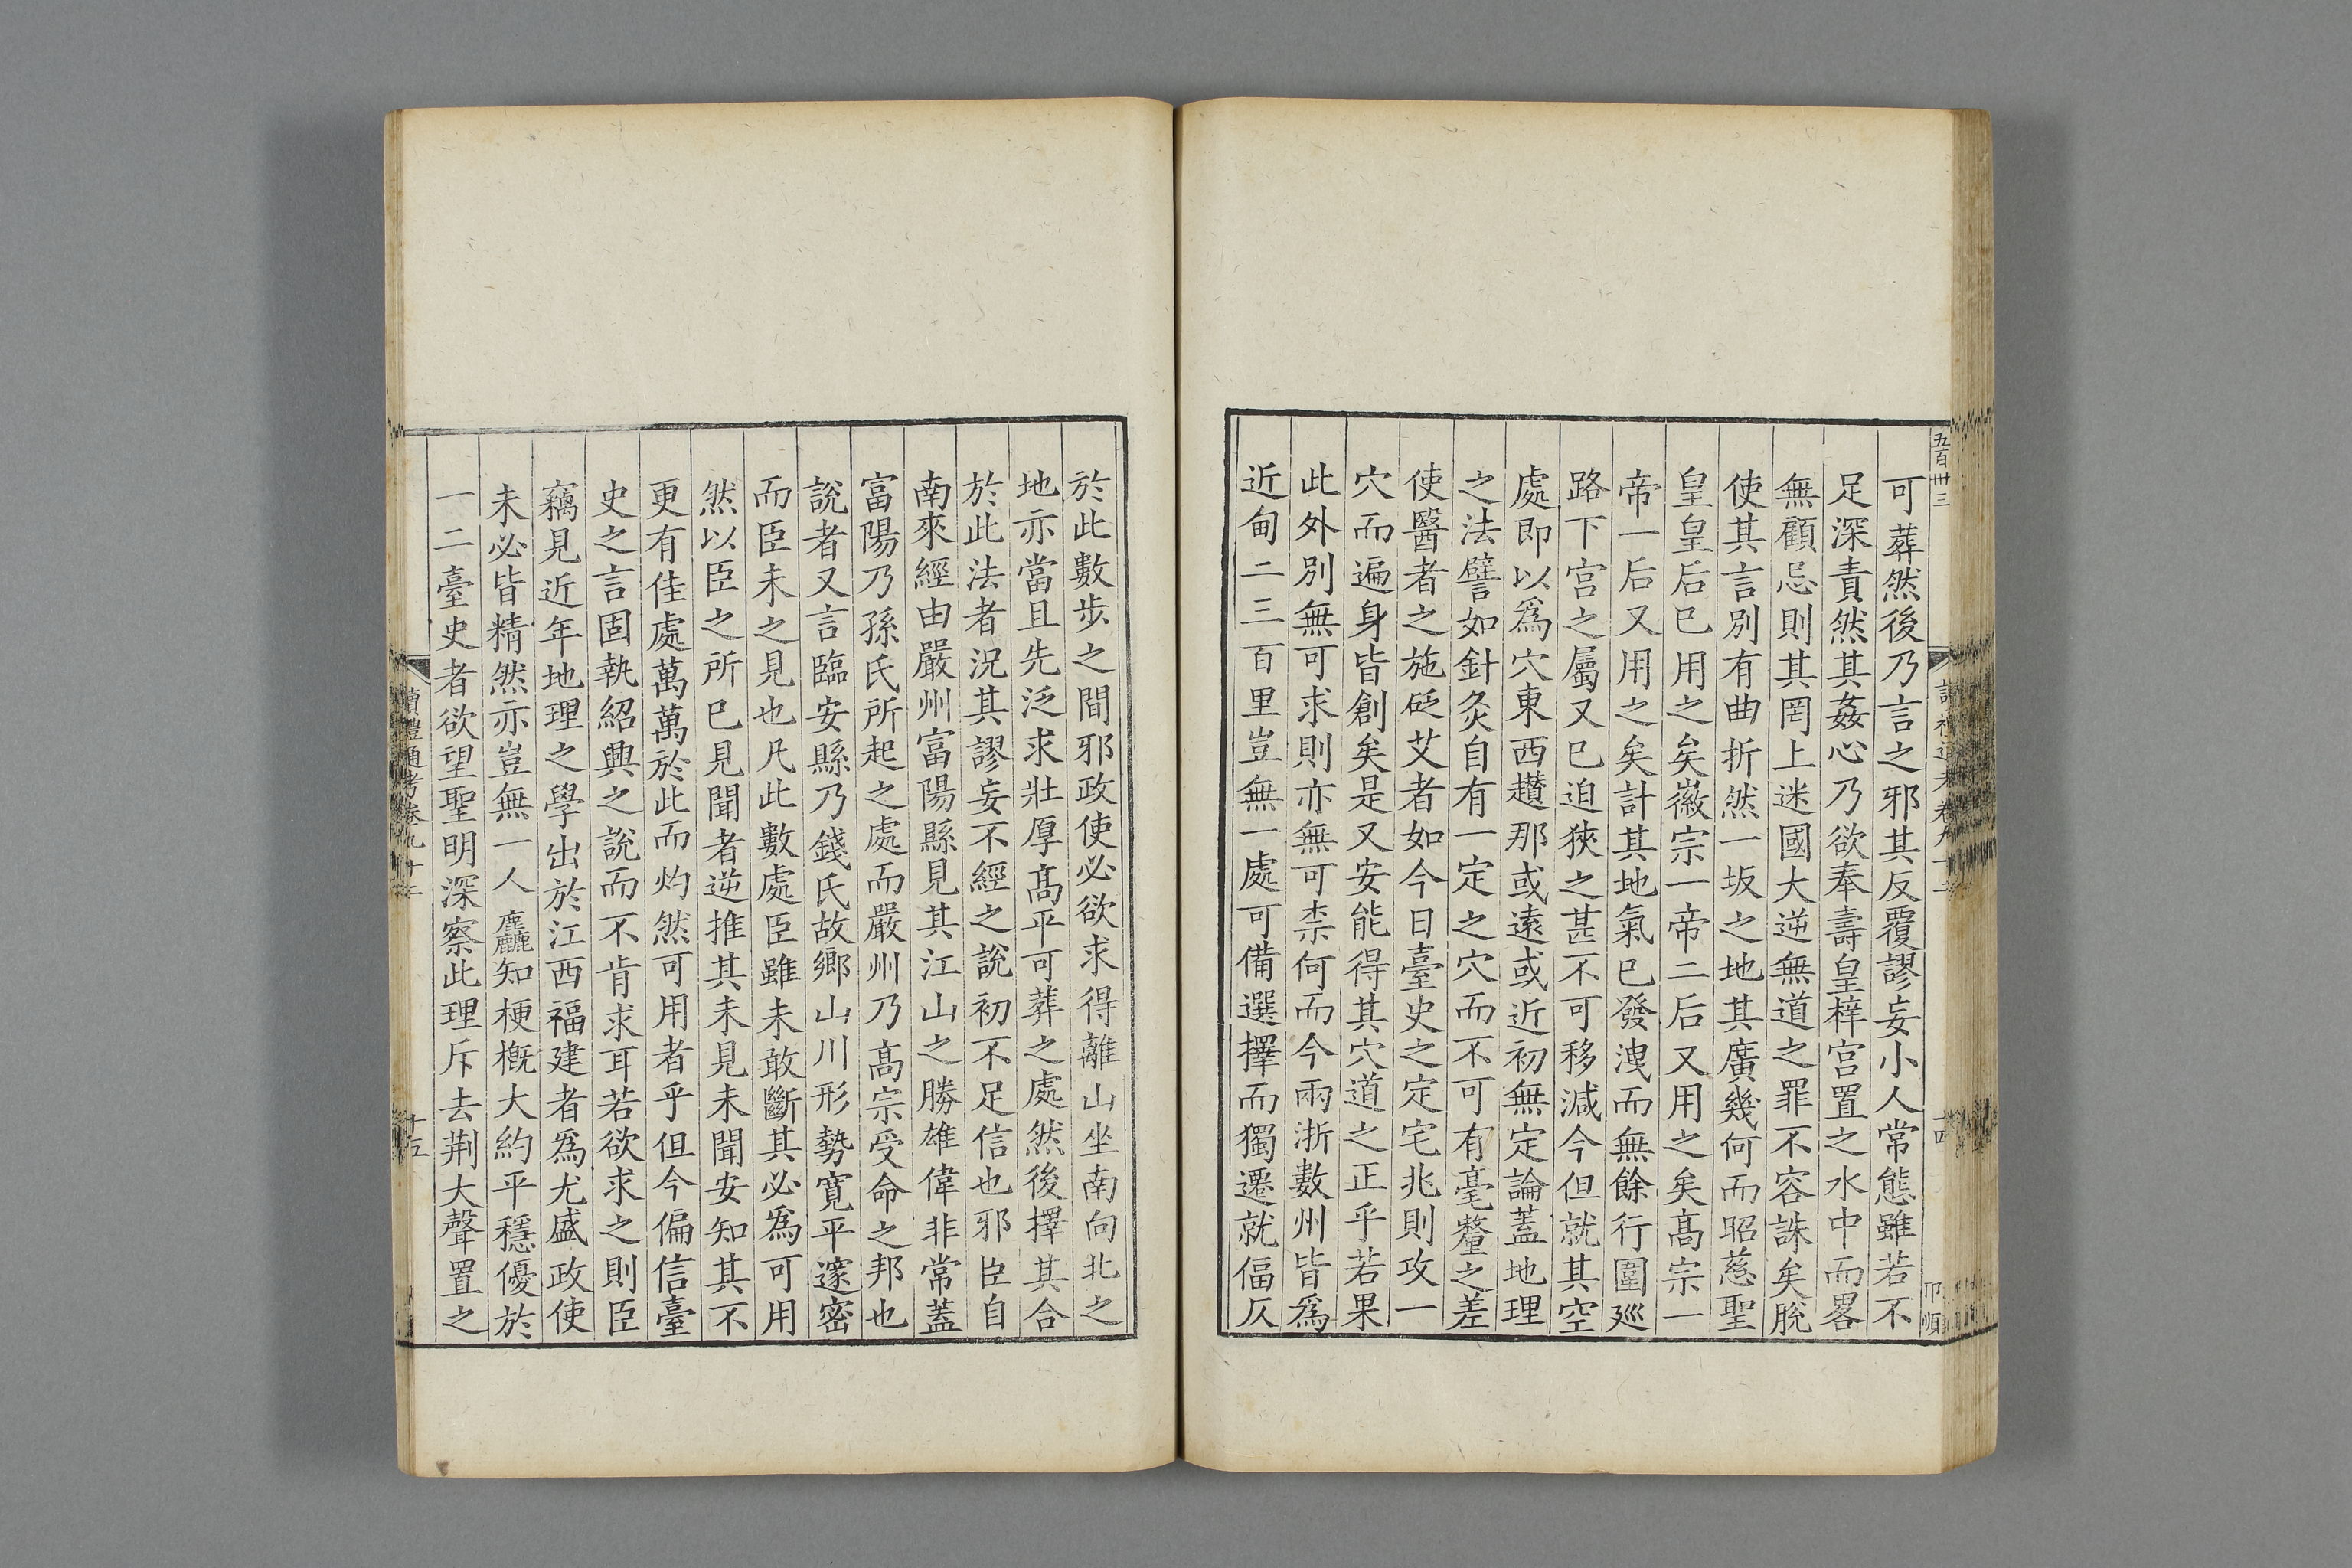 五百卅三
讀禮通考卷九十二
十四
可葬然後乃言之邪其反覆謬妄小人常態雖若不
足深責然其姦心乃欲奉壽皇梓宮置之水中而畧
無顧忌則其罔上迷國大逆無道之罪不容誅矣脫
使其言別有曲折然一坂之地其廣幾何而昭慈聖
皇皇后巳用之矣徽宗一帝二后又用之矣髙宗一
帝一后又用之矣計其地氣巳發洩而無餘行圍廵
路下宮之屬又巳迫狹之甚不可移減今但就其空
處即以爲穴東西趲那或逺或近初無定論葢地理
之法譬如針灸自有一定之穴而不可有毫釐之差
使醫者之施砭艾者如今日臺史之定宅兆則攻一
穴而遍身皆創矣是又安能得其穴道之正乎若果
此外別無可求則亦無可柰何而今兩浙數州皆爲
近甸二三百里豈無一處可備選擇而獨遷就偪仄
於此數歩之間邪政使必欲求得離山坐南向北之
地亦當且先泛求壯厚髙平可葬之處然後擇其合
於此法者況其謬妄不經之說初不足信也邪臣自
南來經由嚴州富陽縣見其江山之勝雄偉非常葢
富陽乃孫氏所起之處而嚴州乃髙宗受命之邦也
說者又言臨安縣乃錢氏故鄉山川形勢寛平邃密
而臣未之見也凡此數處臣雖未敢斷其必爲可用
然以臣之所巳見聞者逆推其未見未聞安知其不
更有佳處萬萬於此而灼然可用者乎但今偏信臺
史之言固執紹興之說而不肯求耳若欲求之則臣
竊見近年地理之學出於江西福建者爲尤盛政使
未必皆精然亦豈無一人麤知梗槪大約平穩優於
一二臺史者欲望聖明深察此理斥去荆大聲置之
讀禮通考卷九十二
十五